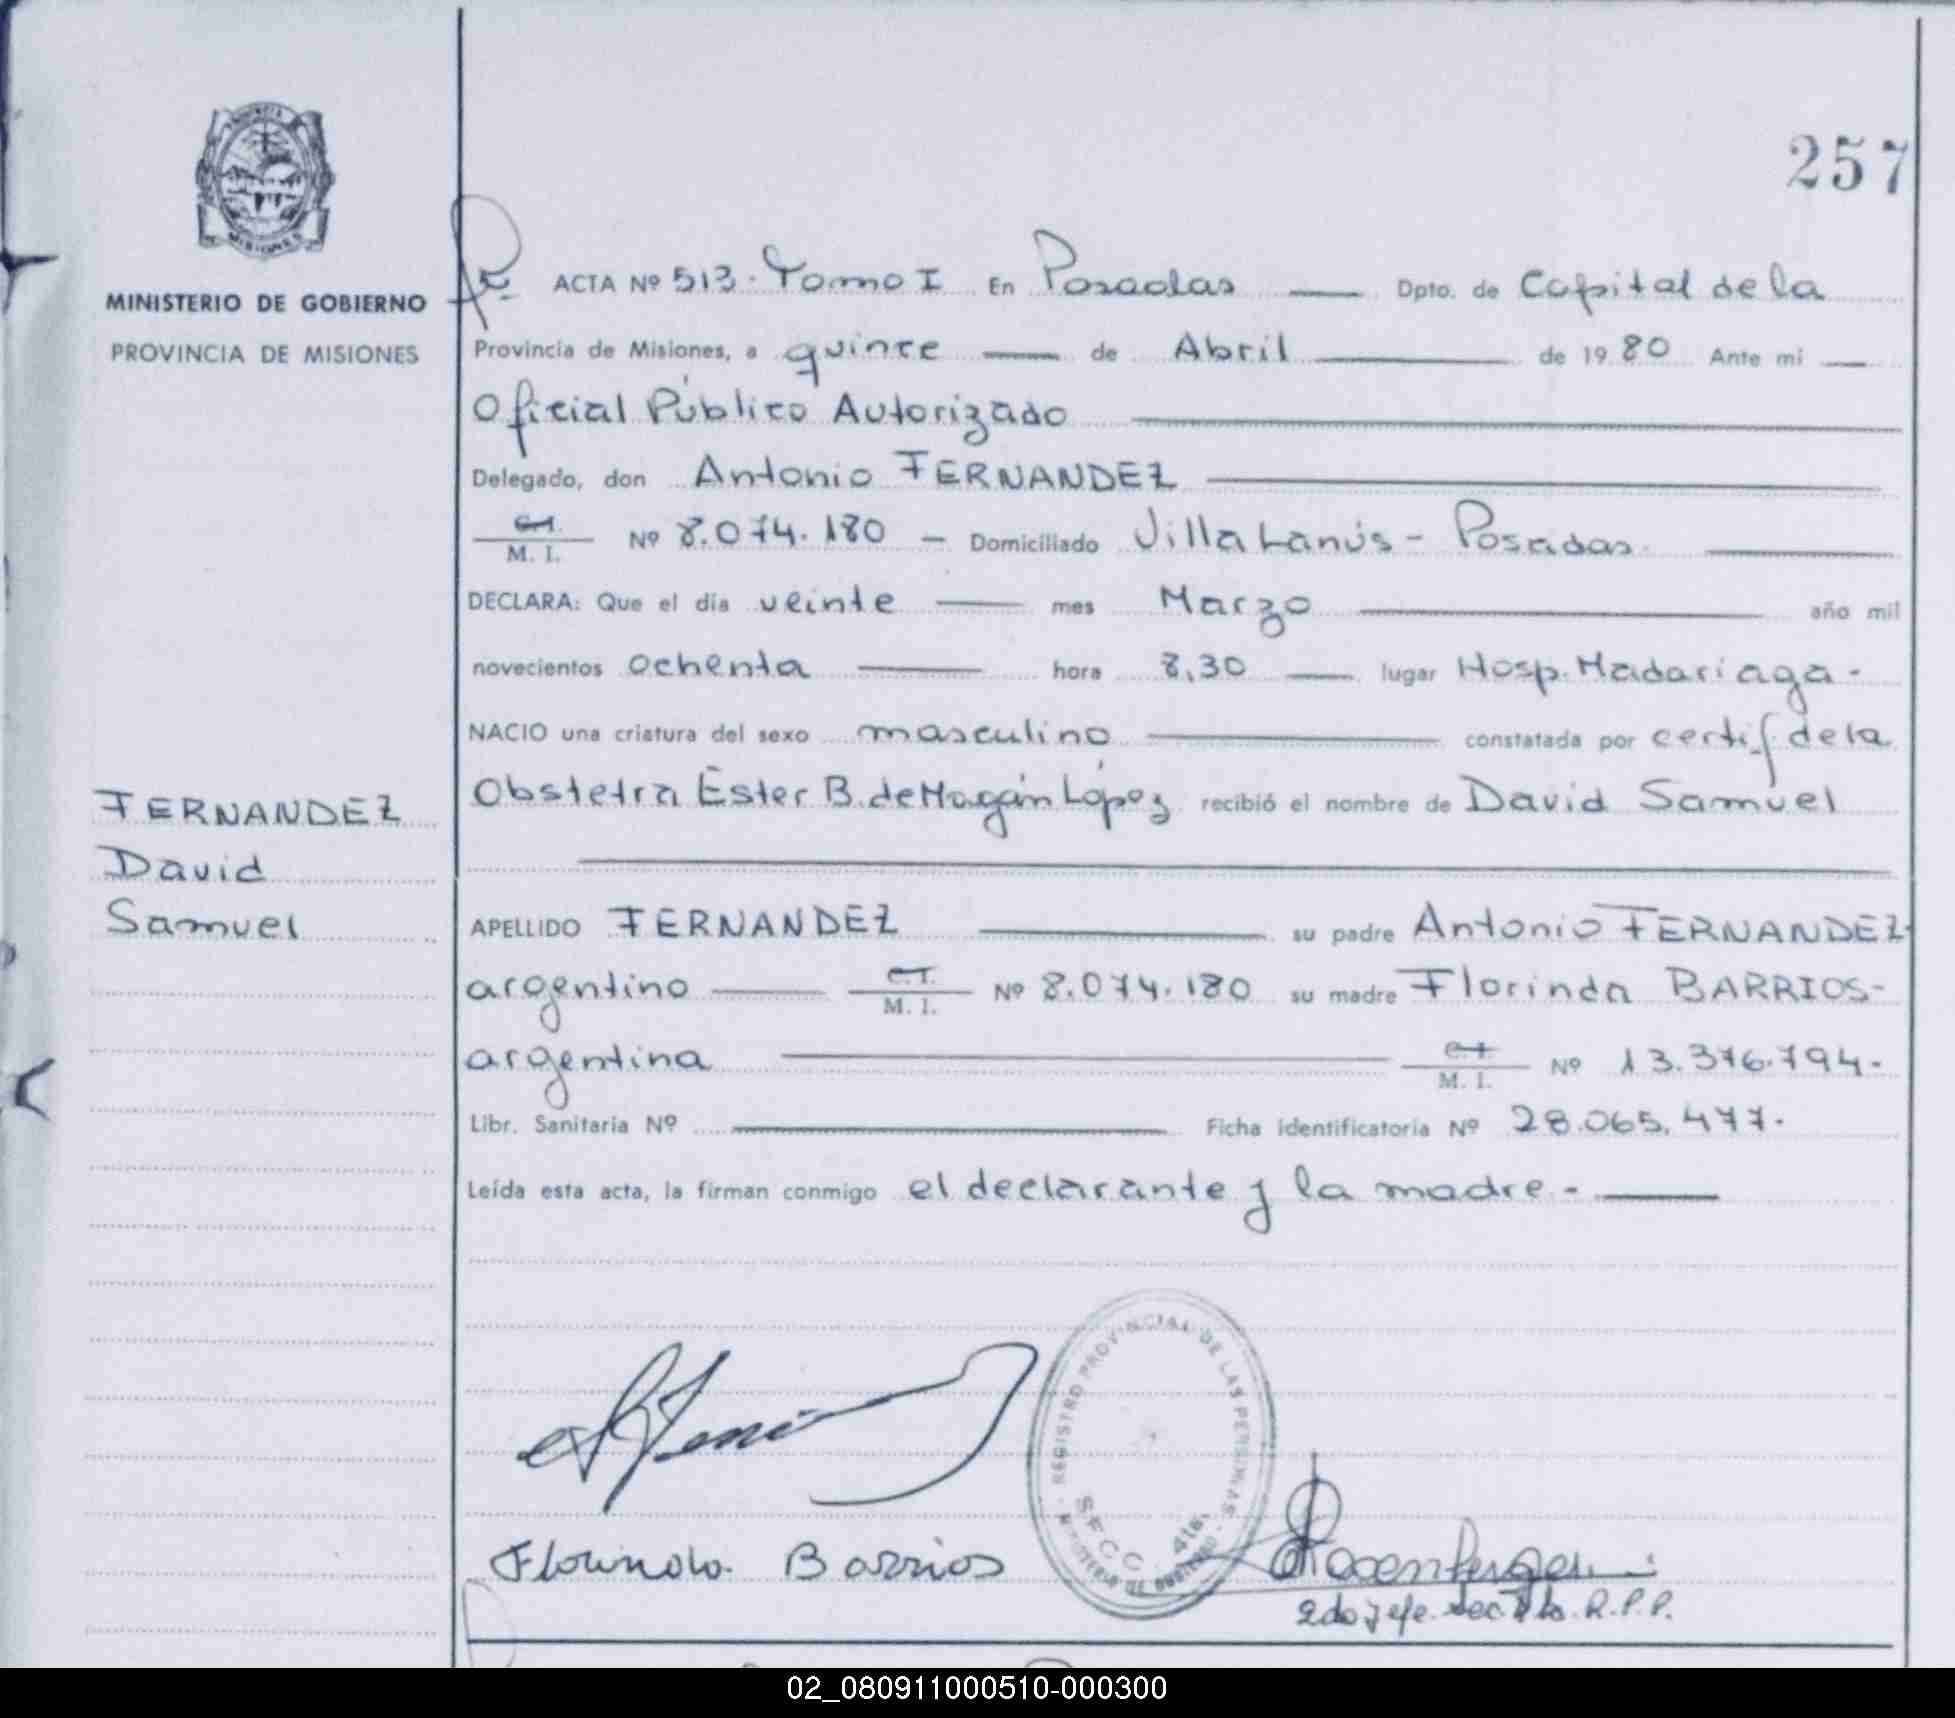 257
MINISTERIO DE GOBIERNO
PROVINCIA DE MISIONES
ACTA Nº 513. Tomo I En Posadas Dpto. de Capital de la
Provincia de Misiones, a quince de Abril de 1980 Ante mi
Oficial Público Autorizado
Delegado, don Antonio FERNANDEZ
C.I.
M. I. Nº 8.074.180 - Domiciliado Villa Lanús - Posadas
DECLARA: Que el día veinte mes Marzo año mil
novecientos ochenta hora 8,30 lugar Hosp. Madariaga -
NACIO una criatura del sexo masculino constatada por certif de la
Obstetra Ester B. de Magán López recibió el nombre de David Samuel
FERNANDEZ
David
Samuel
APELLIDO FERNANDEZ su padre Antonio FERNANDEZ
argentino C.I. M. I. Nº 8.074.180 su madre Florinda BARRIOS-
argentina C.I. M. I. Nº 13.376.794.-
Libr. Sanitaria Nº Ficha identificatoria Nº 28.065.477.
Leída esta acta, la firman conmigo el declarante y la madre.-
REGISTRO PROVINCIAL DE LAS PERSONAS
MINISTERIO DE GOBIERNO
Florinda Barrios
2do Jefe Sec. R.P.P.
02_080911000510-000300